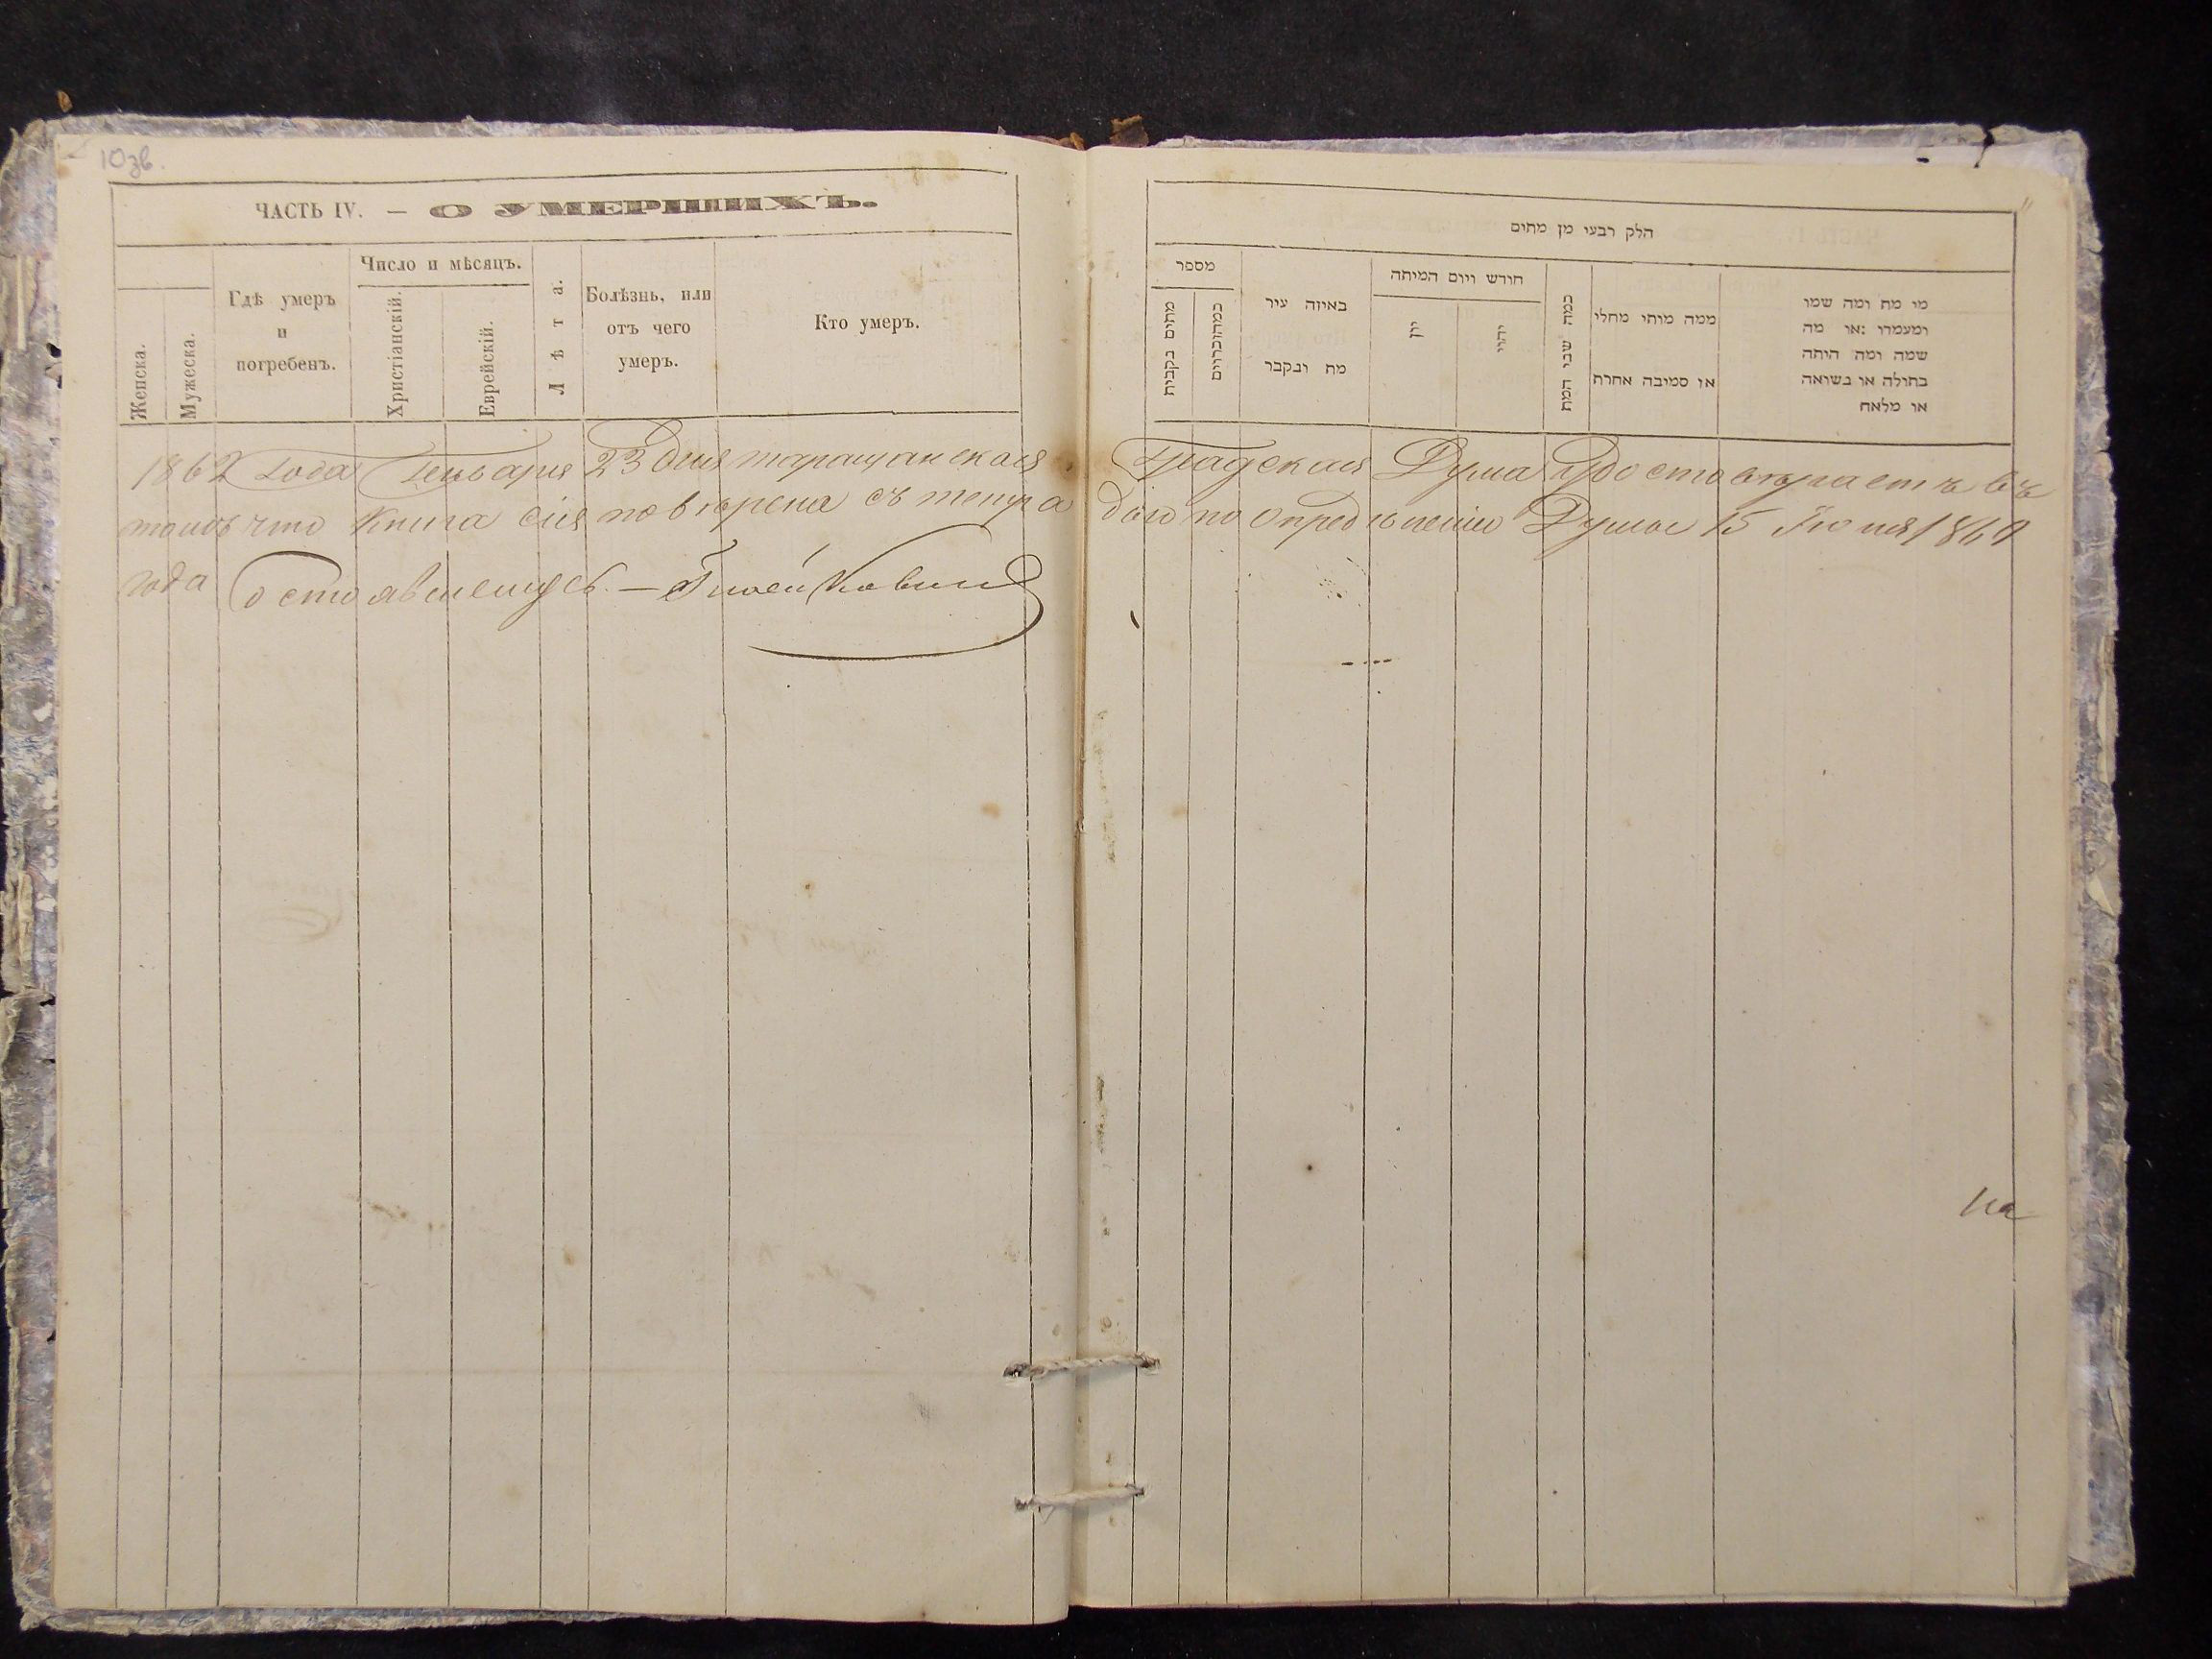 10зв.
ЧАСТЬ IV. — О УМЕРШИХЪ.
Женска.
Мужеска.
Гдѣ умеръ
и
погребенъ.
Число и мѣсяцъ.
Христіанскій.
Еврейскій.
Лѣта.
Болѣзнь, или
отъ чего
умеръ.
Кто умеръ.
חלק רבעי מן מתים
מספר
מתים נקבות
באיזה עיר
מת ונקבר
חודש ויום המיתה
יון
יהוד
כמה שני המת
ממה מותו מחלי
או סמיבה אחרת
מי מת ומה שמו
ומעמדו :או מה
שמה ומה היתה
בתולה או נשואה
או מלאח
1862 года Генваря 23 дня таращанская Градская Дума удостовѣряетъ въ
томъ что Книга сія повѣрена съ тетрадою по опредѣленію Думы 15 Іюня
года состоявшемусь. —
на